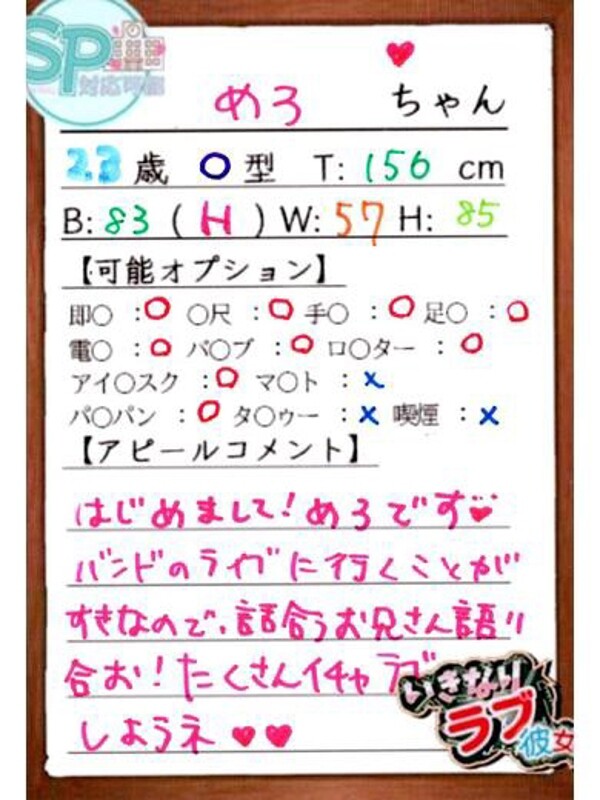 SP
対応可能
めろ ちゃん
23歳 O型 T: 156 cm
B: 83 (H) W: 57 H: 85
【可能オプション】
即〇 :○ 〇尺 :○ 手〇 :○ 足〇 :○
電〇 :○ パ〇ブ :○ ロ〇ター :○
アイ〇スク :○ マ〇ト :x
パ〇パン :○ タ〇ゥー :x 喫煙 :x
【アピールコメント】
はじめまして!めろです♥
バンドのライブに行くことが
すきなので、話合うお兄さん語り
合お!たくさんイチャラブ
しようネ♥♥
いきなり
ラブ彼女